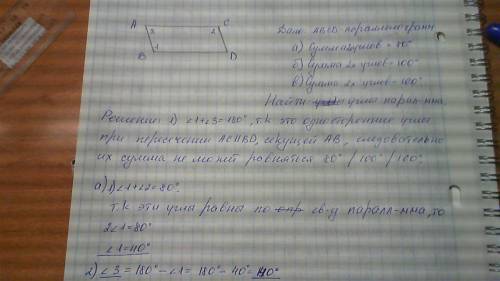 A C
3 2
1
B D
Дано: ABCD - параллелограмм
а) сумма 2х углов = 80°
б) сумма 2х углов = 100°
в) сумма 2х углов = 160°
Найти углы парал-мма
Решение: 1) <1+<3=180°, т.к это односторонние углы
при пересечении AC||BD, секущей AB, следовательно
их сумма не может равняться 80° / 100° / 160°.
а) 1) <1+<2=80°.
т.к эти углы равны по св-ву паралл-мма, то
2<1=80°
<1=40°
2) <3 = 180° - <1 = 180° - 40° = 140°